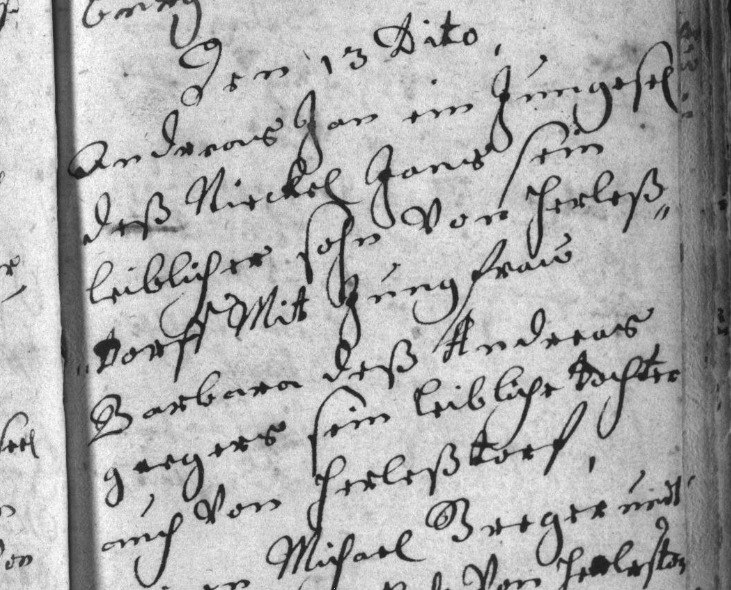 den 13 Dito,
Andreas Jan ein Jungesel
deß Nickel Jans sein
leiblicher sohn Von Herleß„
„dorff Mit Jungfraw
Barbara deß Andreas
gregers sein leibliche dochter
auch Von Herleßtorf,
Michael Greger undt
Von Herlestor